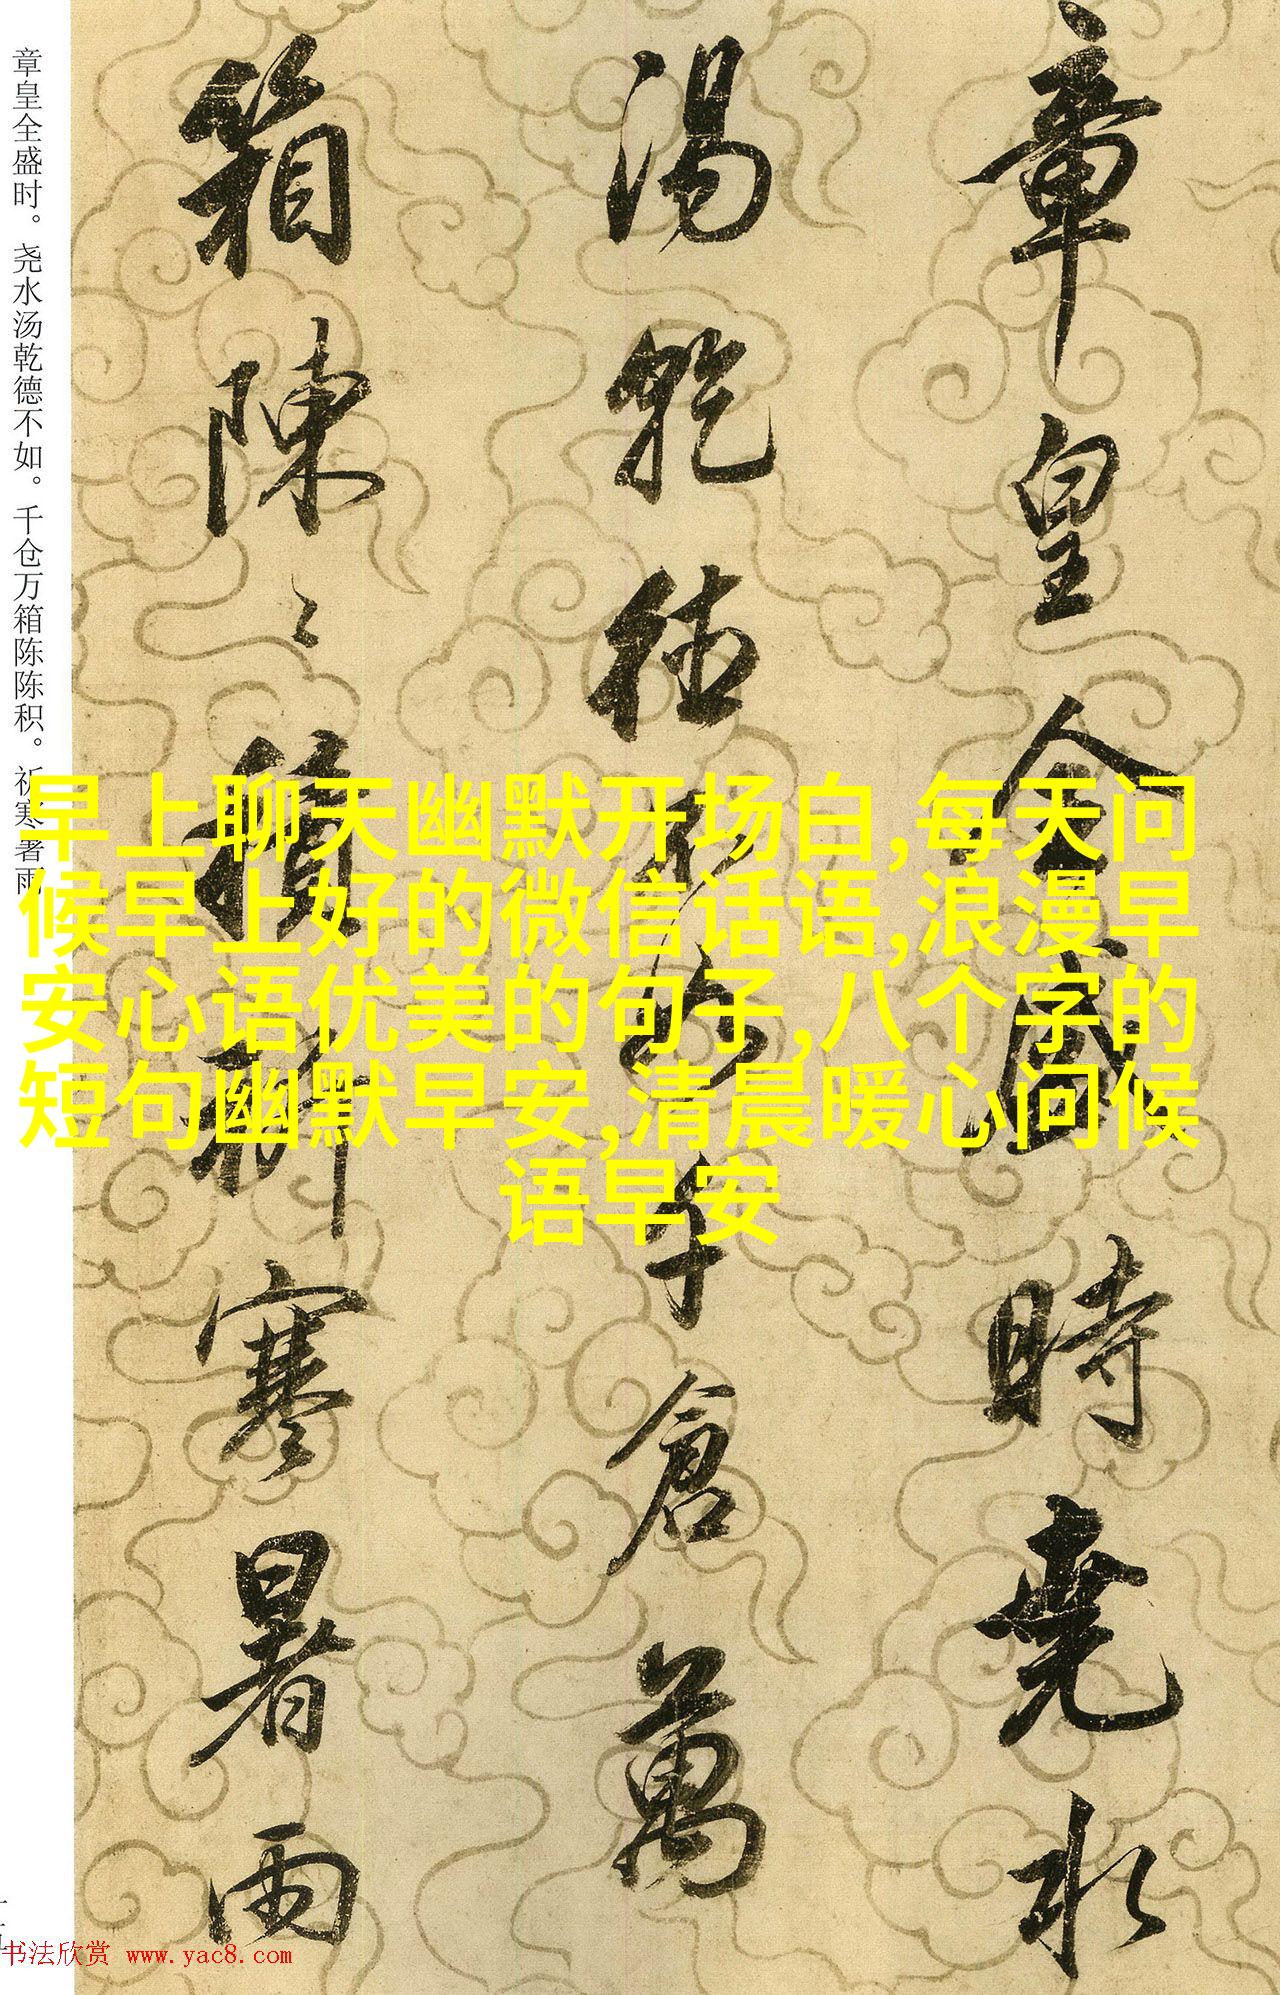 章皇全盛時堯水
湯乾德不如千倉萬
箱陳〻積祈寒暑雨
章皇全盛时。尧水汤乾德不如。千仓万箱陈陈积。祈寒暑雨
早上聊天幽默开场白,每天问
候早上好的微信话语,浪漫早
安心语优美的句子,八个字的
短句幽默早安,清晨暖心问候
语早安
书法欣赏 www.yac8.com